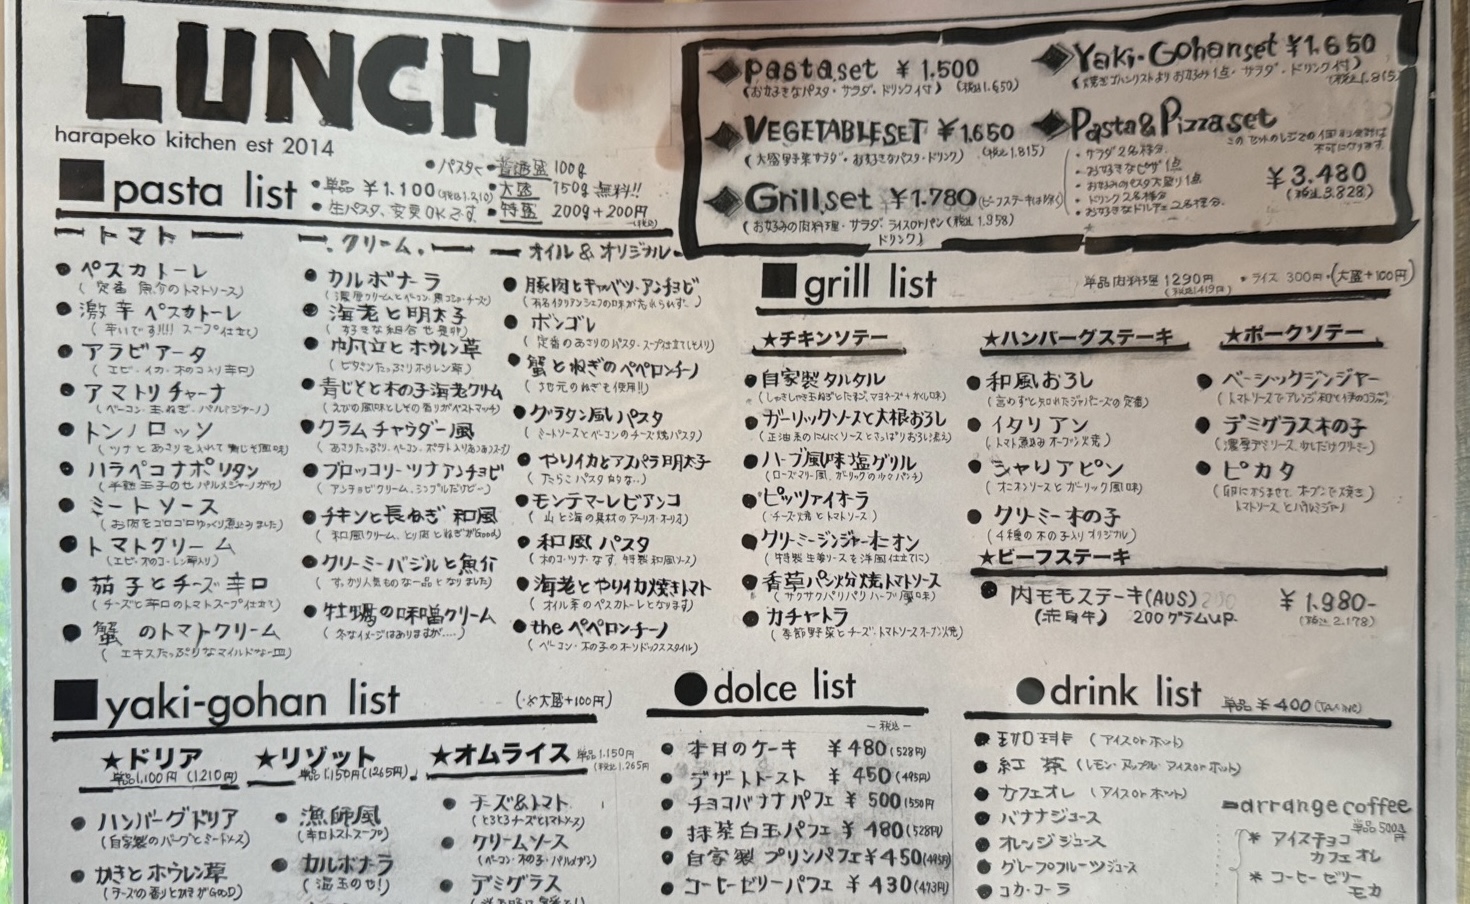 LUNCH
harapeko kitchen est 2014
pastaset ¥1.500
(お好きなパスタ・サラダ・ドリンク付) (税込1.650)
VEGETABLESET ¥1.650
(大盛野菜サラダ・お好きなパスタ・ドリンク) (税込1.815)
Grill.set ¥1.780
(お好みの肉料理・サラダ・ライスorパン (税込1.958)
ドリンク)
Yaki-Gohanset ¥1.650
(税込1.815)
Pasta&Pizzaset
・サラダ2名様分
・お好きなピザ1点
・お好みのパスタ大盛り1点
・ドリンク2名様分
・お好きなドルチェ2名様分
¥3.480
(税込3.828)
■pasta list
・単品 ¥1.100(税込1.210)
・生パスタ、変更OKです
・パスター普通盛 100g
・大盛 150g 無料!!
・特盛 200g+200円
トマト
・ペスカトーレ
(定番 魚介のトマトソース)
・激辛ペスカトーレ
(辛いです!!!! スープ仕立て)
・アラビアータ
(エビ・イカ・木のコ入り辛口)
・アマトリチャーナ
(ベーコン・玉ねぎ・パルミジャーノ)
・トンノロッソ
・ハラペコナポリタン
・ミートソース
(お肉をゴロゴロゆっくり煮込みました)
・トマトクリーム
・茄子とチーズ辛口
(チーズと辛口のトマトスープ仕立て)
・蟹のトマトクリーム
(エキスたっぷりなマイルドな一皿)
・クリーム・
・カルボナーラ
・海老と明太子
(好きな組合せ是非)
・帆立とホウレン草
(ビタミンたっぷりホウレン草)
・青じそと木の子海老クリーム
(えびの風味としその香りがベストマッチ)
・クラムチャウダー風
・ブロッコリーツナアンチョビ
・チキンと長ねぎ 和風
(和風クリーム、とり肉とねぎがGood)
・クリーミーバジルと魚介
(すっかり人気ものな一品となりました)
・牡蠣の味噌クリーム
(冬なイメージはありますが....)
オイル&オリジナル
・豚肉とキャベツ・アンチョビ
・ボンゴレ
・蟹とねぎのペペロンチーノ
(地元のねぎも使用!!)
・グラタン風パスタ
(ミートソースとベーコンのチーズ焼パスタ)
・やりイカとアスパラ明太子
・モンテマーレビアンコ
(山と海の具材のアーリオ・オーリオ)
・和風パスタ
(木のコ・ツナ・なす 特製和風ソース)
・海老とやりイカ焼きトマト
(オイル系のペスカトーレとなります)
・the ペペロンチーノ
(ベーコン・木の子のオーソドックススタイル)
■grill list
単品肉料理 1290円
(税込1419円)
・ライス 300円・(大盛+100円)
★チキンソテー
・自家製タルタル
・ガーリックソースと大根おろし
・ハーブ風味塩グリル
・ピッツァイオーラ
(チーズ焼とトマトソース)
・クリーミージンジャーオニオン
(特製生姜ソースを洋風仕立てに)
・香草パン粉焼トマトソース
(サクサクパリパリハーブ風味)
・カチャトラ
(季節野菜とチーズ・トマトソースオーブン焼)
★ハンバーグステーキ
・和風おろし
(言わずと知れたジャパニーズの定番)
・イタリアン
(トマト煮込みオーブン焼)
・シャリアピン
(オニオンソースとガーリック風味)
・クリーミー木の子
(4種の木の子入りオリジナル)
★ポークソテー
・ベーシックジンジャー
・デミグラス木の子
・ピカタ
(卵にからませて、オーブンで焼き)
トマトソースとパルミジャーノ
★ビーフステーキ
・内モモステーキ(AUS)
(赤身牛) 200グラムup
¥1.980-
(税込2.178)
■yaki-gohan list (※大盛+100円)
★ドリア
単品1,100円(1210円)
・ハンバーグドリア
・かきとホウレン草
(チーズの香りとかきがGOOD)
★リゾット
単品1,150円(1265円)
・漁師風
(辛口トマトスープ)
・カルボナーラ
(温玉のせ!)
★オムライス 単品1.150円
(税込1.265円
・チーズ&トマト
(とろとろチーズとトマトソース)
・クリームソース
(ベーコン・木の子・パルメザン)
・デミグラス
●dolce list
―税込―
・本日のケーキ ¥480(528円)
・デザートトースト ¥450(495円)
・チョコバナナパフェ ¥500(550円
・抹茶白玉パフェ ¥480(528円)
・自家製プリンパフェ¥450(495円)
・コーヒーゼリーパフェ ¥430(473円)
●drink list 単品¥400(TAX INC)
・珈琲 (アイスorホット)
・紅茶(レモン・アップル・アイスorホット)
・カフェオレ (アイスorホット)
・バナナジュース
・オレンジジュース
・グレープフルーツジュース
・コカ・コーラ
arrange coffee
単品500円
* アイスチョコ
カフェオレ
* コーヒーゼリー
モカ